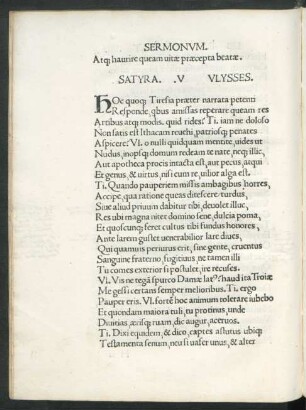 SERMONVM.
Atq; haurire queam uitæ præcepta beatæ.
SATYRA. .V VLYSSES.
HOc quoq; Tiresia præter narrata petenti
Responde, qbus amissas reperare queam res
Artibus atq; modis. quid rides? Ti. iam ne doloso
Non satis est Ithacam reuehi, patriosq; penates
Aspicere? Vl. o nulli quidquam mentite, uides ut
Nudus, inopsq; domum redeam te uate, neq; illic,
Aut apotheca procis intacta est, aut pecus, atqui
Et genus, & uirtus, nisi cum re, uilior alga est.
Ti. Quando pauperiem missis ambagibus horres,
Accipe, qua ratione queas ditescere. turdus,
Siue aliud priuum dabitur tibi, deuolet illuc,
Res ubi magna nitet domino sene, dulcia poma,
Et quoscunq; feret cultus tibi fundus honores,
Ante larem gustet uenerabilior lare diues,
Qui quamuis periurus erit, sine gente, cruentus
Sanguine fraterno, fugitiuus, ne tamen illi
Tu comes exterior si postulet, ire recuses.
Vl. Vt ne tegā spurco Damæ latꝰ? haud ita Troiæ
Me gessi certans semper melioribus. Ti. ergo
Pauper eris. Vl. fortē hoc animum tolerare iubebo
Et quondam maiora tuli, tu protinus, unde
Diuitias, ærisq; ruam, dic augur, aceruos.
Ti. Dixi equidem, & dico, captes astutus ubiq;
Testamenta senum, neu si uafer unus, & alter